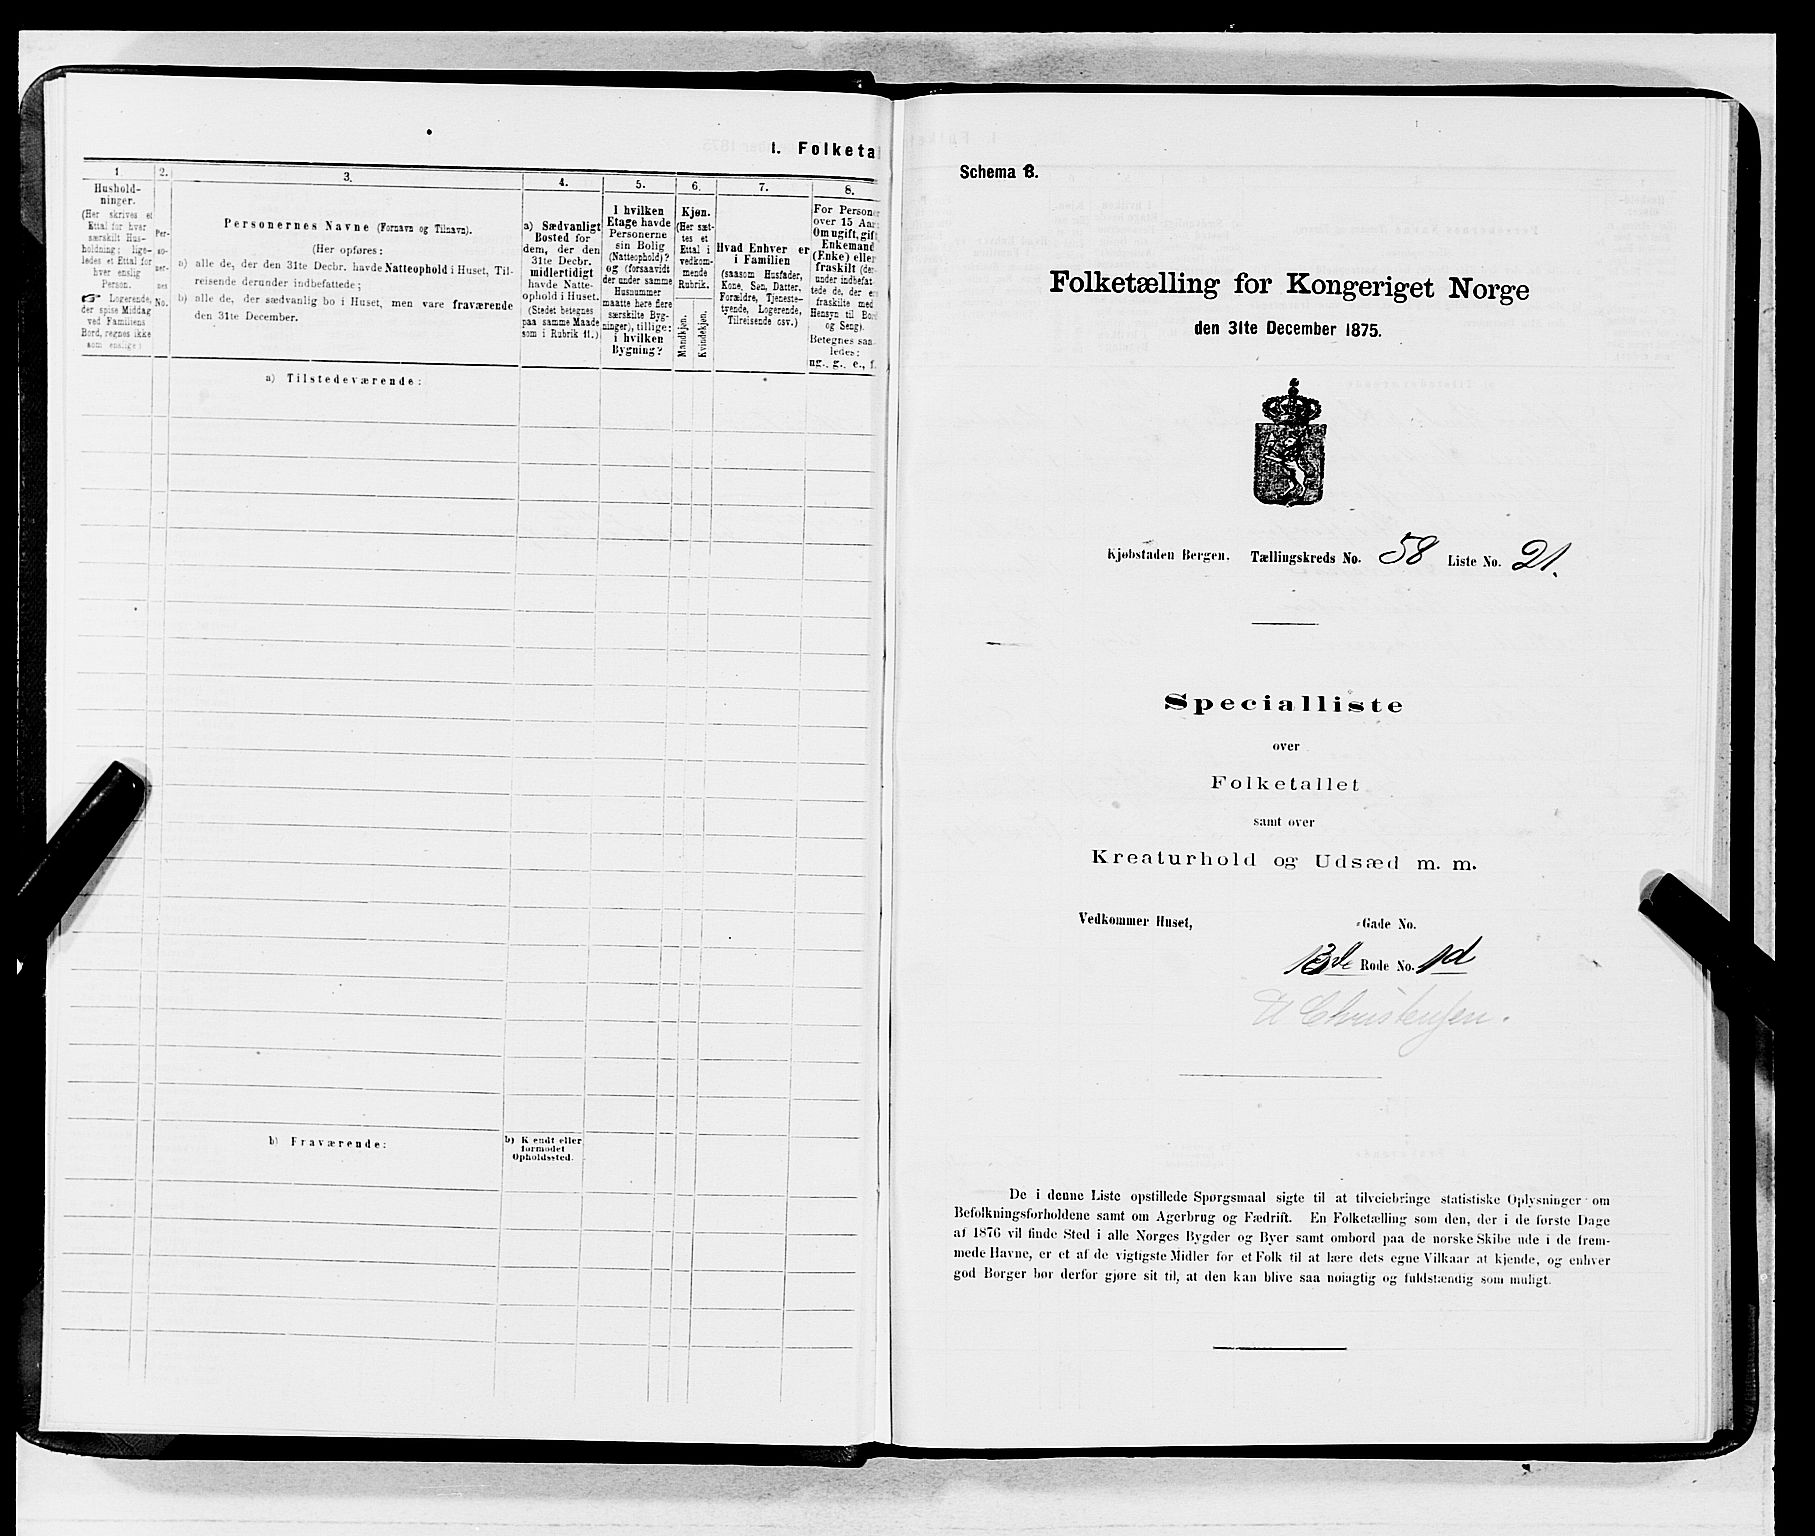 I. Folketa
1.
Hushold-
ninger.
(Her skrives et
Ettal for hver
særskilt Hus-
holdning; lige-
ledes et Ettal for
hver enslig
Person.
☞ Logerende,
der spise Middag
ved Familiens
Bord, regnes ikke
som enslige)
2.
Per-
so-
ner-
nes
No.
3.
Personernes Navne (Fornavn og Tilnavn).
(Her opføres:
a) alle de, der den 31te Decbr. havde Natteophold i Huset, Til-
reisende derunder indbefattede;
b) alle de, der sædvanlig bo i Huset, men vare fraværende
den 31te December.
4.
a) Sædvanligt
Bosted for
dem, der den
31te Decbr.
midlertidigt
havde Natte-
ophold i Huset.
(Stedet betegnes
paa samme Maade
som i Rubrik 11.)
5.
I hvilken
Etage havde
Personerne
sin Bolig
(Natteophold)?
og (forsaavidt
der under samme
Husnummer
maatte høre flere
særskilte Byg-
ninger), tillige:
i hvilken
Bygning?
6.
Kjøn.
(Her sæt-
tes et
Ettal i
vedkom-
mende
Rubrik.
Mandkjøn.
Kvindekjøn.
7.
Hvad Enhver er
i Familien
(saasom Husfader,
Kone, Søn, Datter,
Forældre, Tjeneste-
tyende, Logerende,
Tilreisende osv.)
8.
For Persone
over 15 Aar:
Om ugift, gift
Enkemand
(Enke) eller
fraskilt (der-
under indbefat
tede de, der e
fraskilte med
Hensyn til Bor
og Seng).
Betegnes saa
ledes:
ug., g., e., f.
a) Tilstedeværende:
b) Fraværende:
b) Kendt eller
formodet
Opholdssted.
Schema B.
Folketælling for Kongeriget Norge
den 31te December 1875.
Kjøbstaden Bergen. Tællingskreds No. 58 Liste No. 21.
Specialliste
over
Folketallet
samt over
Kreaturhold og Udsæd m. m.
Vedkommer Huset, Gade No.
13de Rode No. 1d
Christensen.
De i denne Liste opstillede Spørgsmaal sigte til at tilveiebringe statistiske Oplysninger om
Befolkningsforholdene samt om Agerbrug og Fædrift. En Folketælling som den, der i de første Dage
af 1876 vil finde Sted i alle Norges Bygder og Byer samt ombord paa de norske Skibe ude i de frem-
mede Havne, er et af de vigtigste Midler for et Folk til at lære dets egne Vilkaar at kjende, og enhver
god Borger bør derfor gjøre sit til, at den kan blive saa nøiagtig og fuldstændig som muligt.